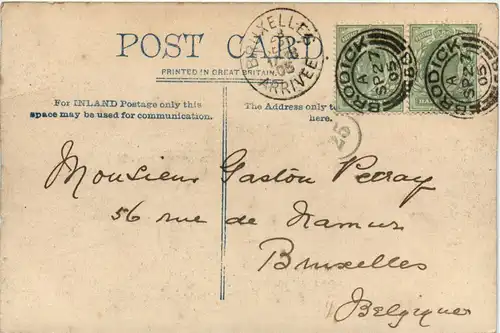 POST CARD
PRINTED IN GREAT BRITAIN.
BRUXELLES
ARRIVEE
BRODICK
A
SP 27
05
BRODICK
A
SP 27
05
For INLAND Postage only this
space may be used for communication.
The Address only to
here.
25
Monsieur Gaston
56 rue de Namur
Bruxelles
Belgique